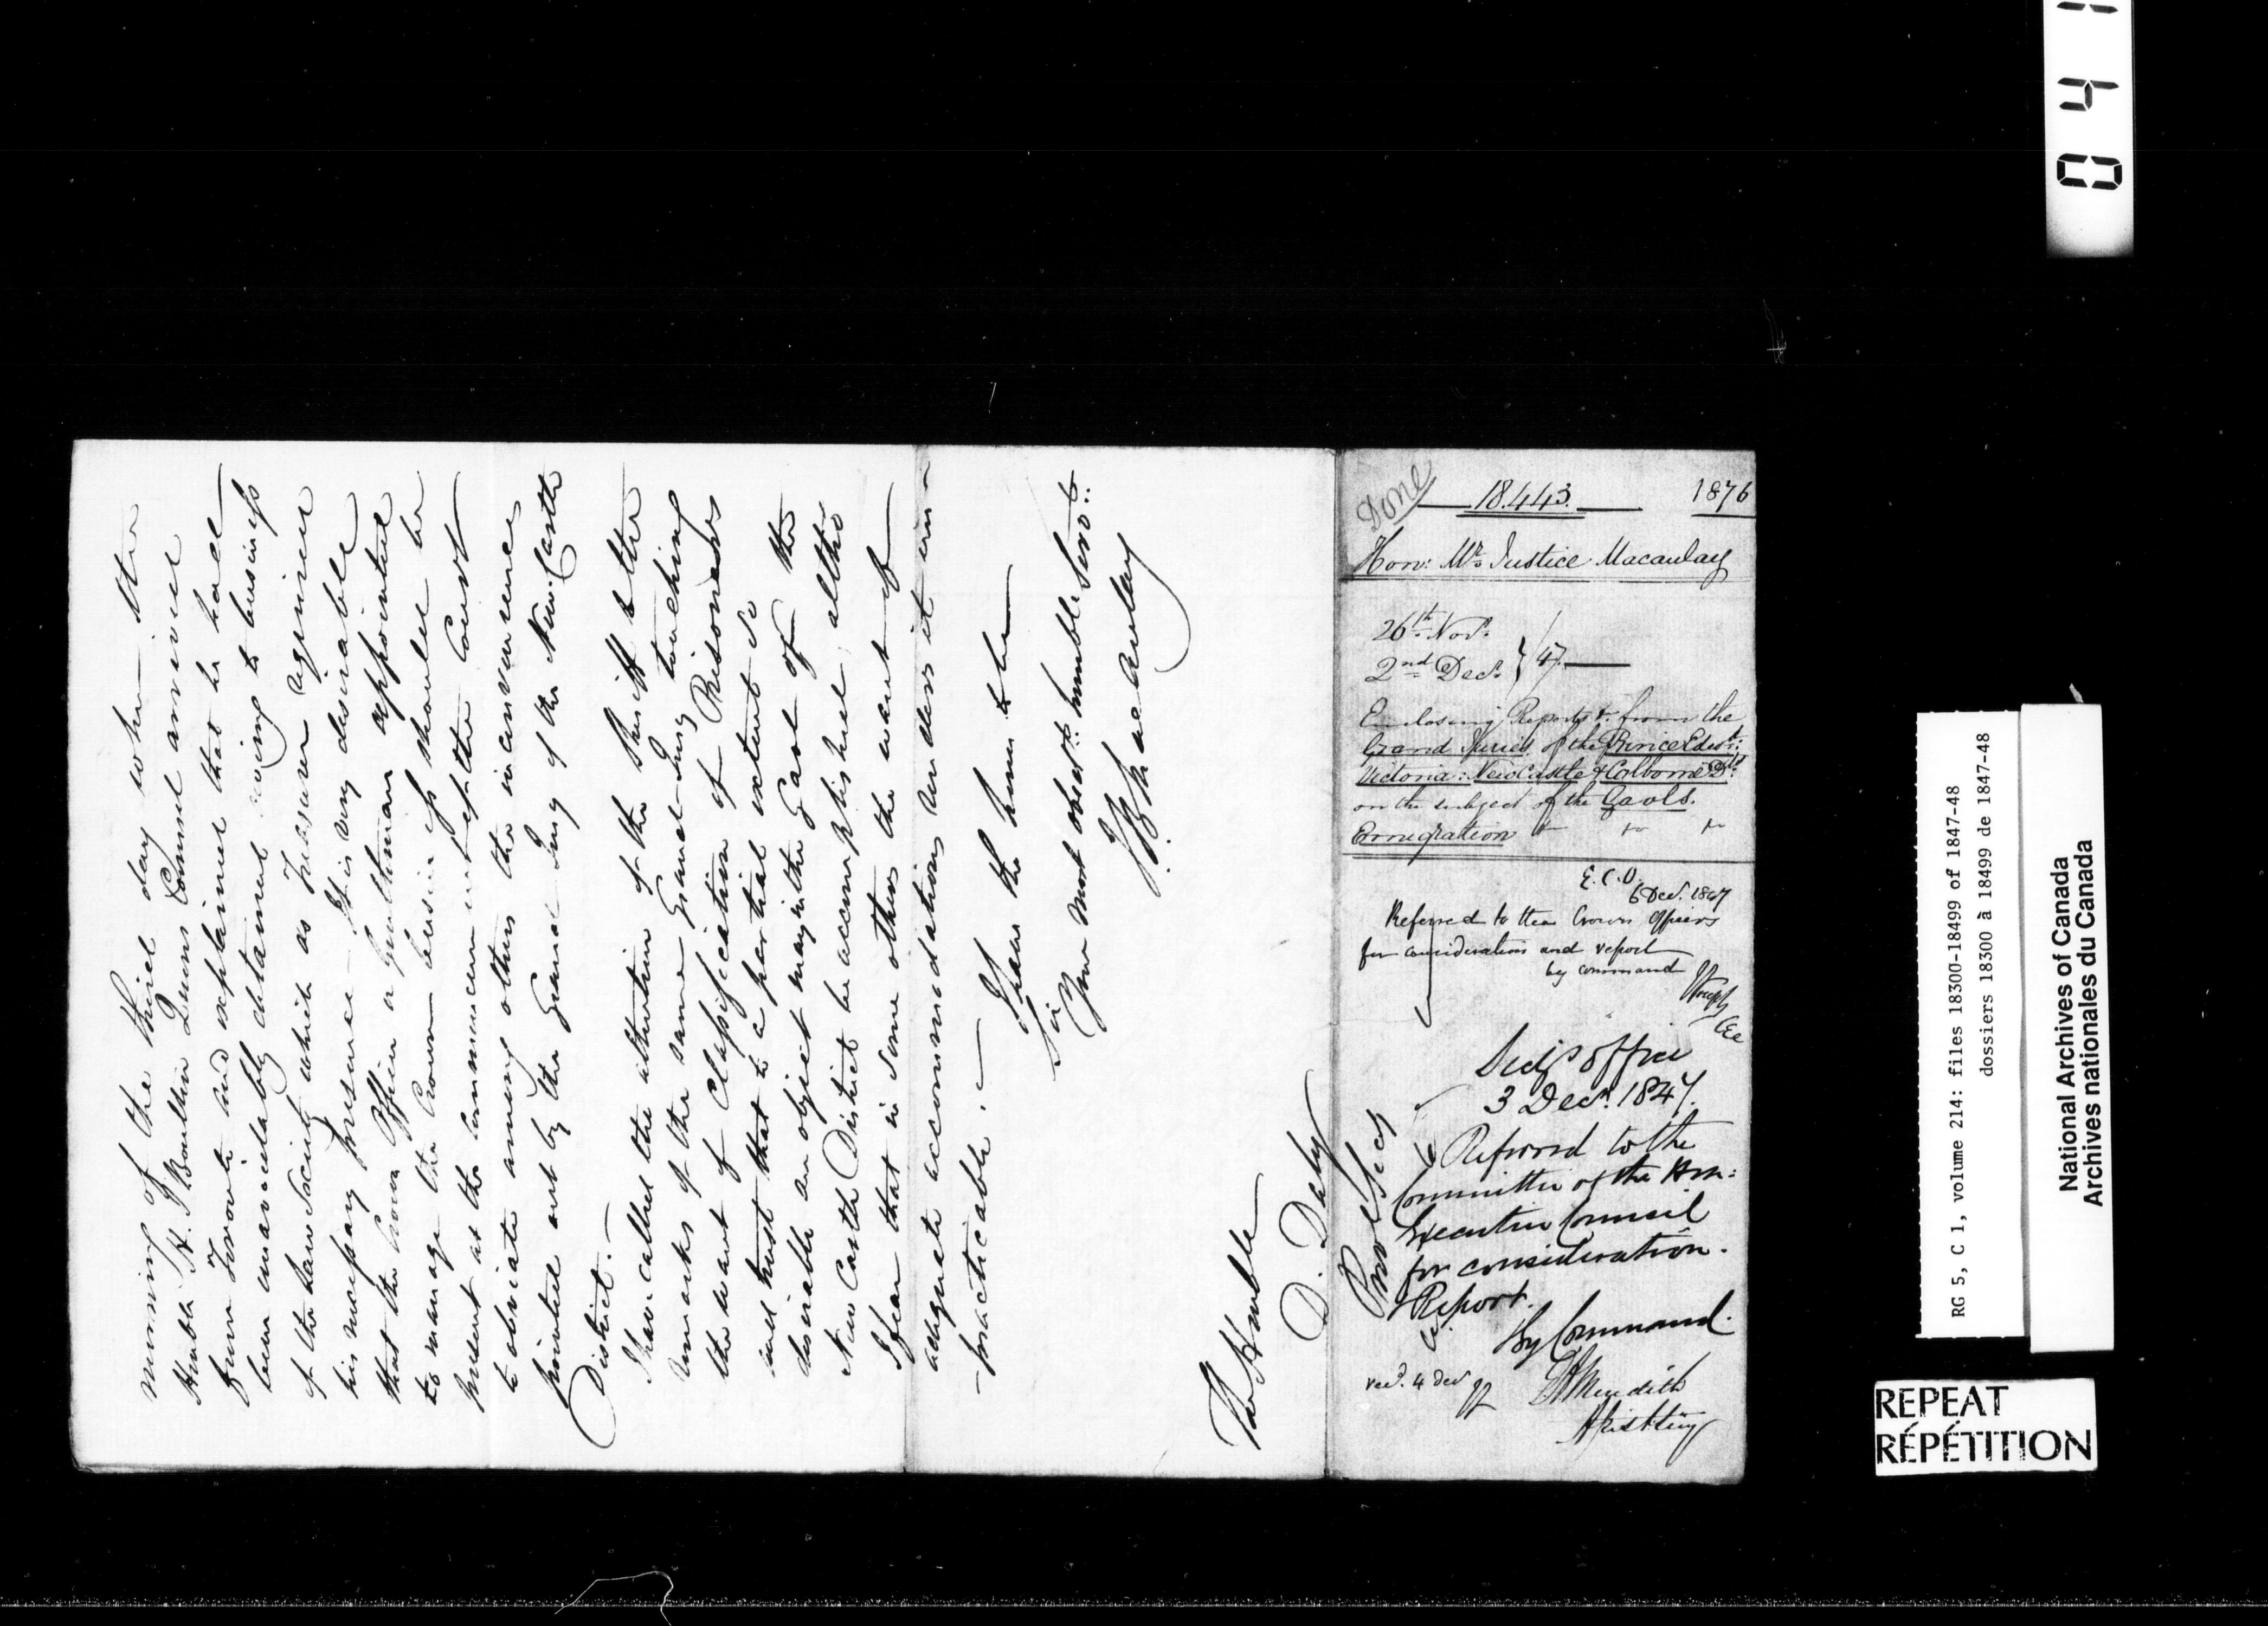 morning of the third day when the
Hnble H. J. Boulton Queens Counsel arrived
from Toronto and explained that he had
been unavoidably detained owing to business
of the Law Society which as Treasurer required
his necessary presence - It is very desirable
that the Crown Officer or gentleman appointed
to manage the Crown business should be
present at the commencement of the Court
to obviate among others the inconvenience
pointed out by the Grand Jury of the New Castle
District. -
I have called the attention of the Sheriff to the
remarks of the same Grand Jury touching
the want of Classification of Prisoners
and trust that to a partial extent so
desirable an object may in the Gaol of the
New Castle District be accomplished, altho
I fear that in some others the want of
adequate accommodations renders it im-
-practicable. -
I have the honor to be
Sir
Your most obedt. humble Servt.
J. B. Macaulay
The Hnble
D. Daly
Done
18.443.
1876
Hon: Mr. Justice Macaulay
26th Novr.
2nd Decr. } 47
Enclosing Reports &c. from the
Grand Juries of the Prince Edwd:
Victoria: New Castle & Colborne Dts:
on the subject of the Gaols.
Emigration
E. C. O.
6 Decr. 1847
Referred to the Crown Officers
for consideration and report
by command
J Joseph
CEC
Secy's Office
3 Decr. 1847.
Referred to the
Committee of the Hon:
Executive Council
for consideration.
& Report.
By Command.
E A Meredith
Asst Secy
Prov Secy
recd. 4 Dec
0 4 1
RG 5, C 1, volume 214: files 18300-18499 of 1847-48
dossiers 18300 à 18499 de 1847-48
National Archives of Canada
Archives nationales du Canada
REPEAT
RÉPÉTITION